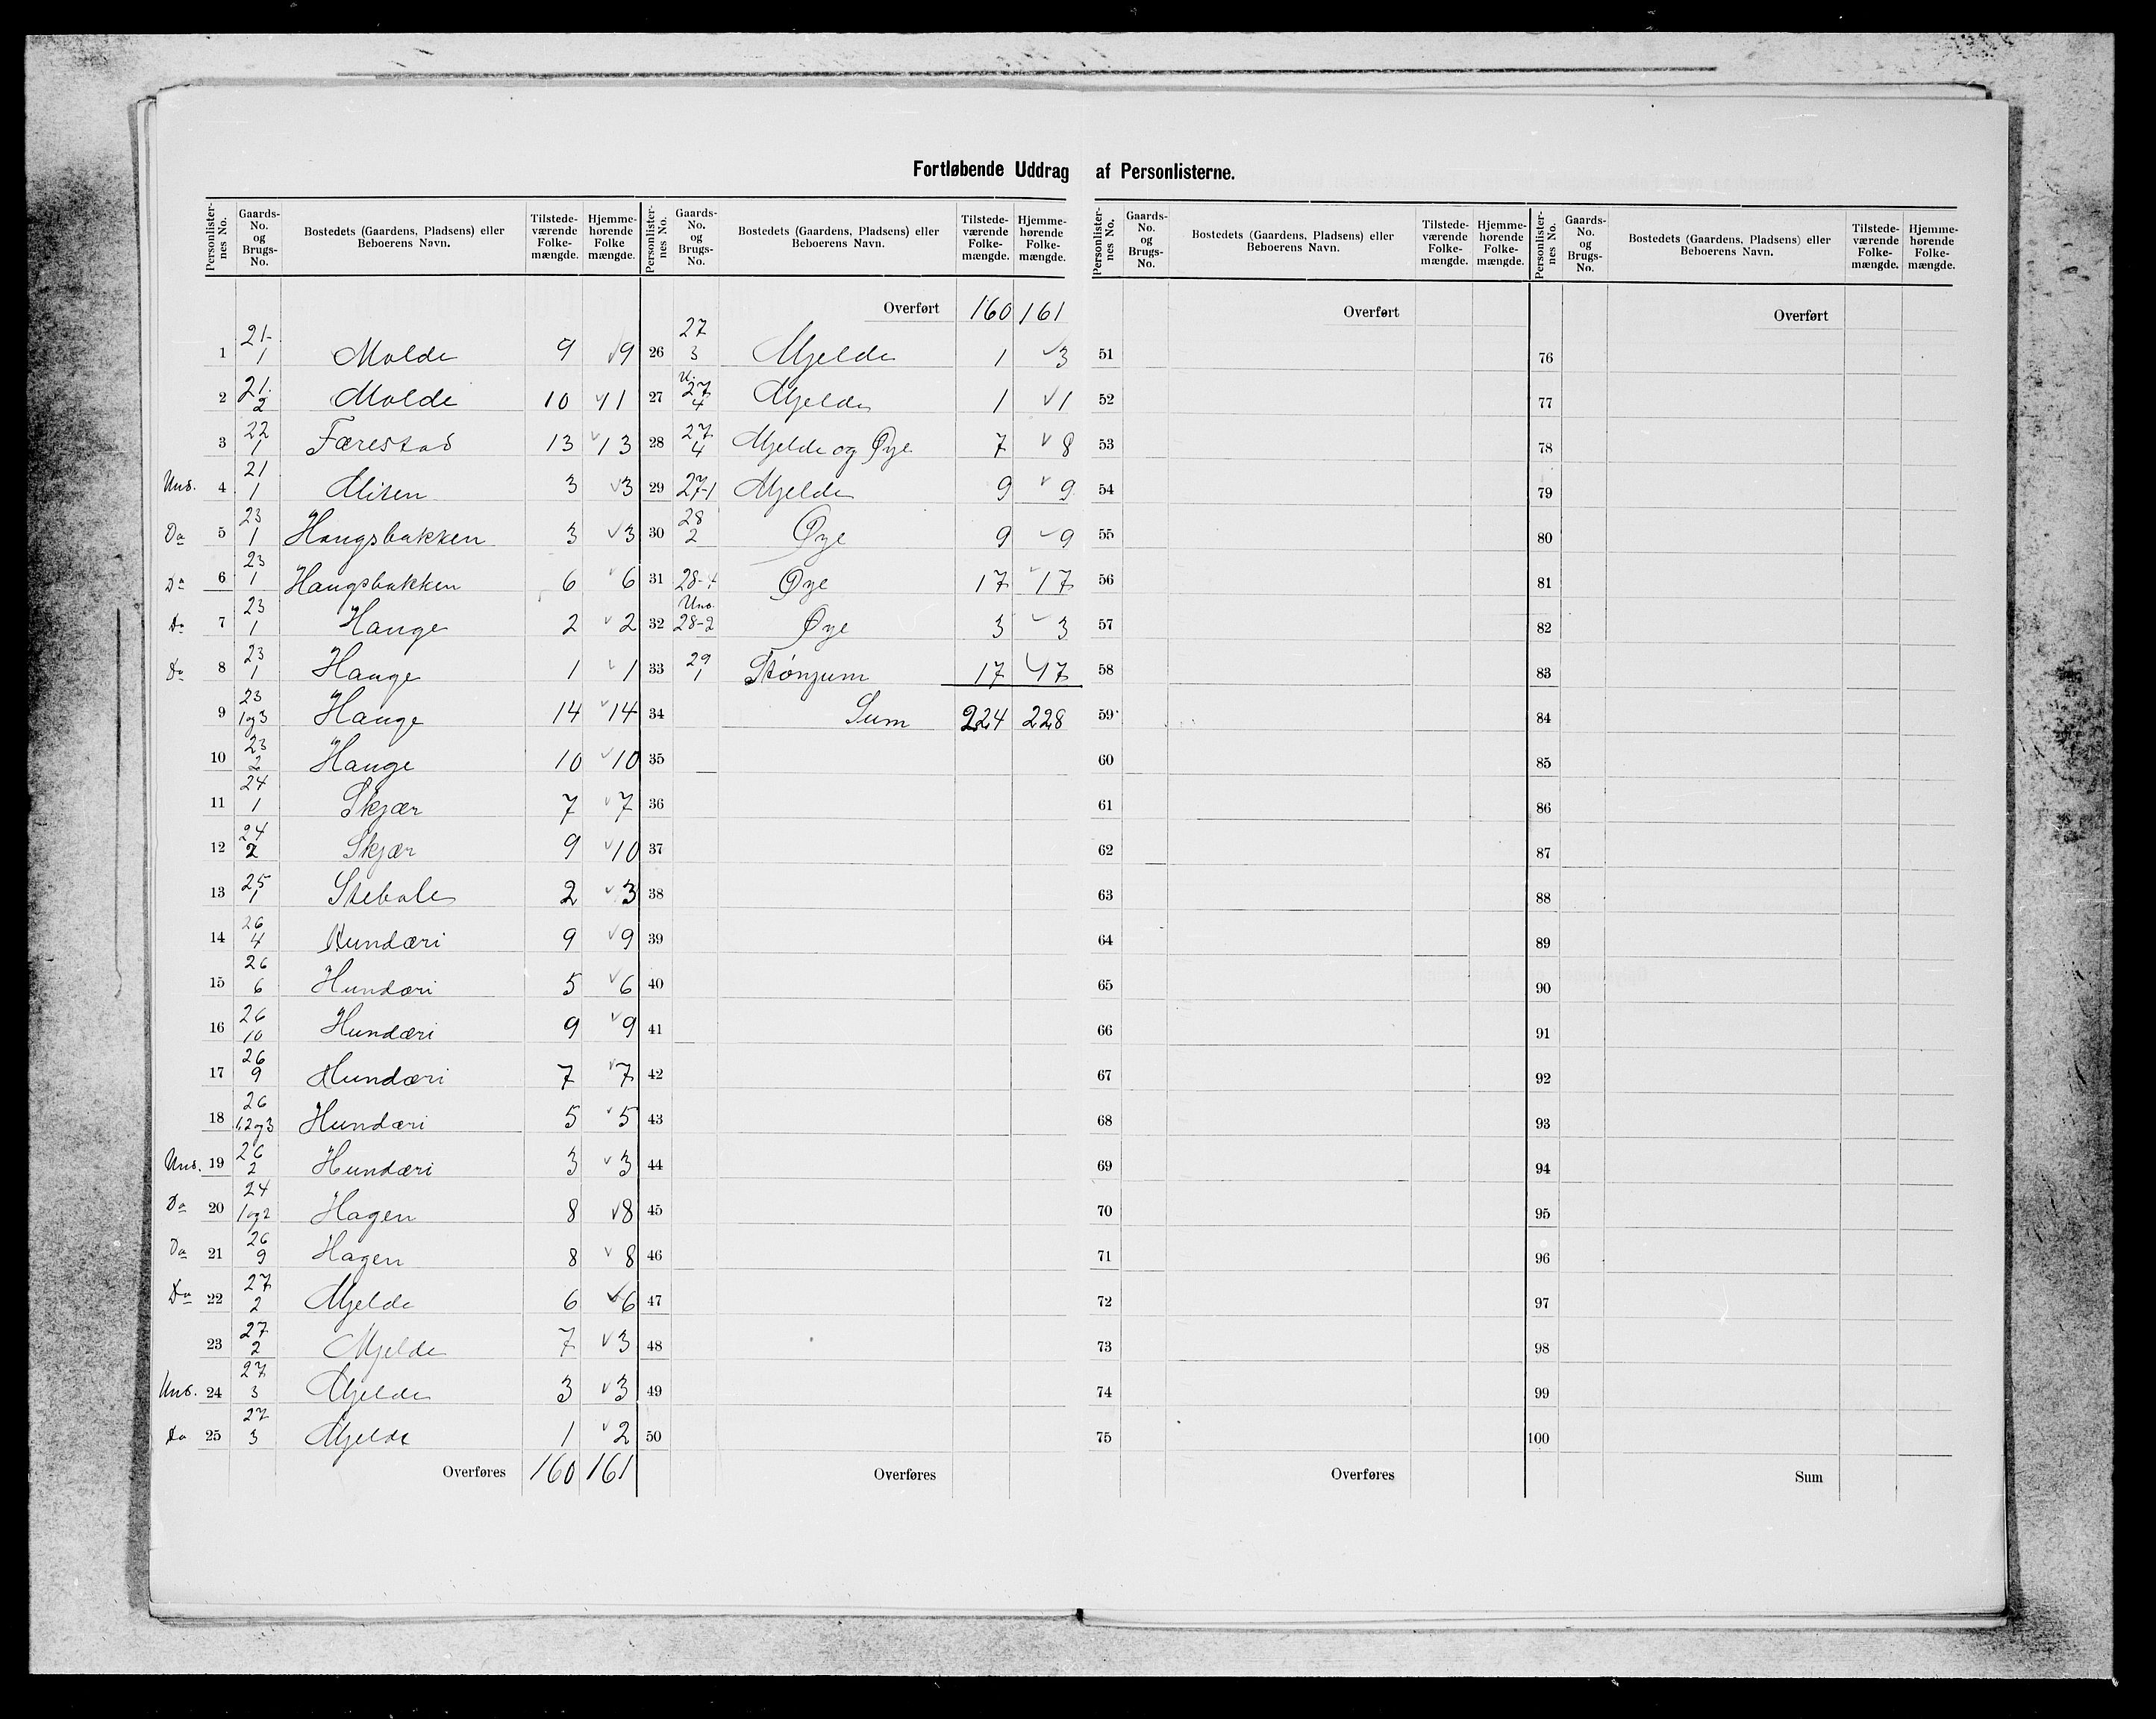 Fortløbende Uddrag af Personlisterne.
Personlisternes No. Gaards-No. og Brugs-No. Bostedets (Gaardens, Pladsens) eller Beboerens Navn. Tilstedeværende Folkemængde. Hjemmehørende Folke mængde.
1 21-1 Molde 9 9
2 21.2 Molde 10 11
3 22 1 Færestad 13 13
Uns. 4 21 1 3 3
Do 5 23 1 Haugsbakken 3 3
Do 6 23 1 Haugsbakken 6 6
Do 7 23 1 Hauge 2 2
Do 8 23 1 Hauge 1 1
9 23 1og3 Hauge 14 14
10 23 2 Hauge 10 10
11 24 1 Skjær 7 7
12 24 2 Skjær 9 10
13 25 1 2 3
14 26 4 Hundæri 9 9
15 26 6 Hundæri 5 6
16 26 10 Hundæri 9 9
17 26 9 Hundæri 7 7
18 26 1,2og3 Hundæri 5 5
Uns. 19 26 2 Hundæri 3 3
Do 20 24 1og2 Hagen 8 8
Do 21 26 9 Hagen 8 8
Do 22 27 2 Mjelde 6 6
23 27 2 Mjelde 7 3
Uns. 24 27 3 Mjelde 3 3
Do 25 27 3 Mjelde 1 2
Overføres 160 161
Personlisternes No. Gaards-No. og Brugs-No. Bostedets (Gaardens, Pladsens) eller Beboerens Navn. Tilstedeværende Folkemængde. Hjemmehørende Folkemængde.
Overført 160 161
26 27 3 Mjelde 1 3
27 U. 27 4 Mjelde 1 1
28 27 4 Mjelde og Øye 7 8
29 27-1 Mjelde 9 9
30 28 2 Øye 9 9
31 28-1 Øye 17 17
32 Uns. 28-2 Øye 3 3
33 29 1 Stønjum 17 17
34 Sum 224 228
35
36
37
38
39
40
41
42
43
44
45
46
47
48
49
50
Overføres
Personlisternes No. Gaards-No. og Brugs-No. Bostedets (Gaardens, Pladsens) eller Beboerens Navn. Tilstedeværende Folkemængde. Hjemmehørende Folkemængde.
Overført
51
52
53
54
55
56
57
58
59
60
61
62
63
64
65
66
67
68
69
70
71
72
73
74
75
Overføres
Personlisternes No. Gaards-No. og Brugs-No. Bostedets (Gaardens, Pladsens) eller Beboerens Navn. Tilstedeværende Folkemængde. Hjemmehørende Folkemængde.
Overført
76
77
78
79
80
81
82
83
84
85
86
87
88
89
90
91
92
93
94
95
96
97
98
99
100
Sum